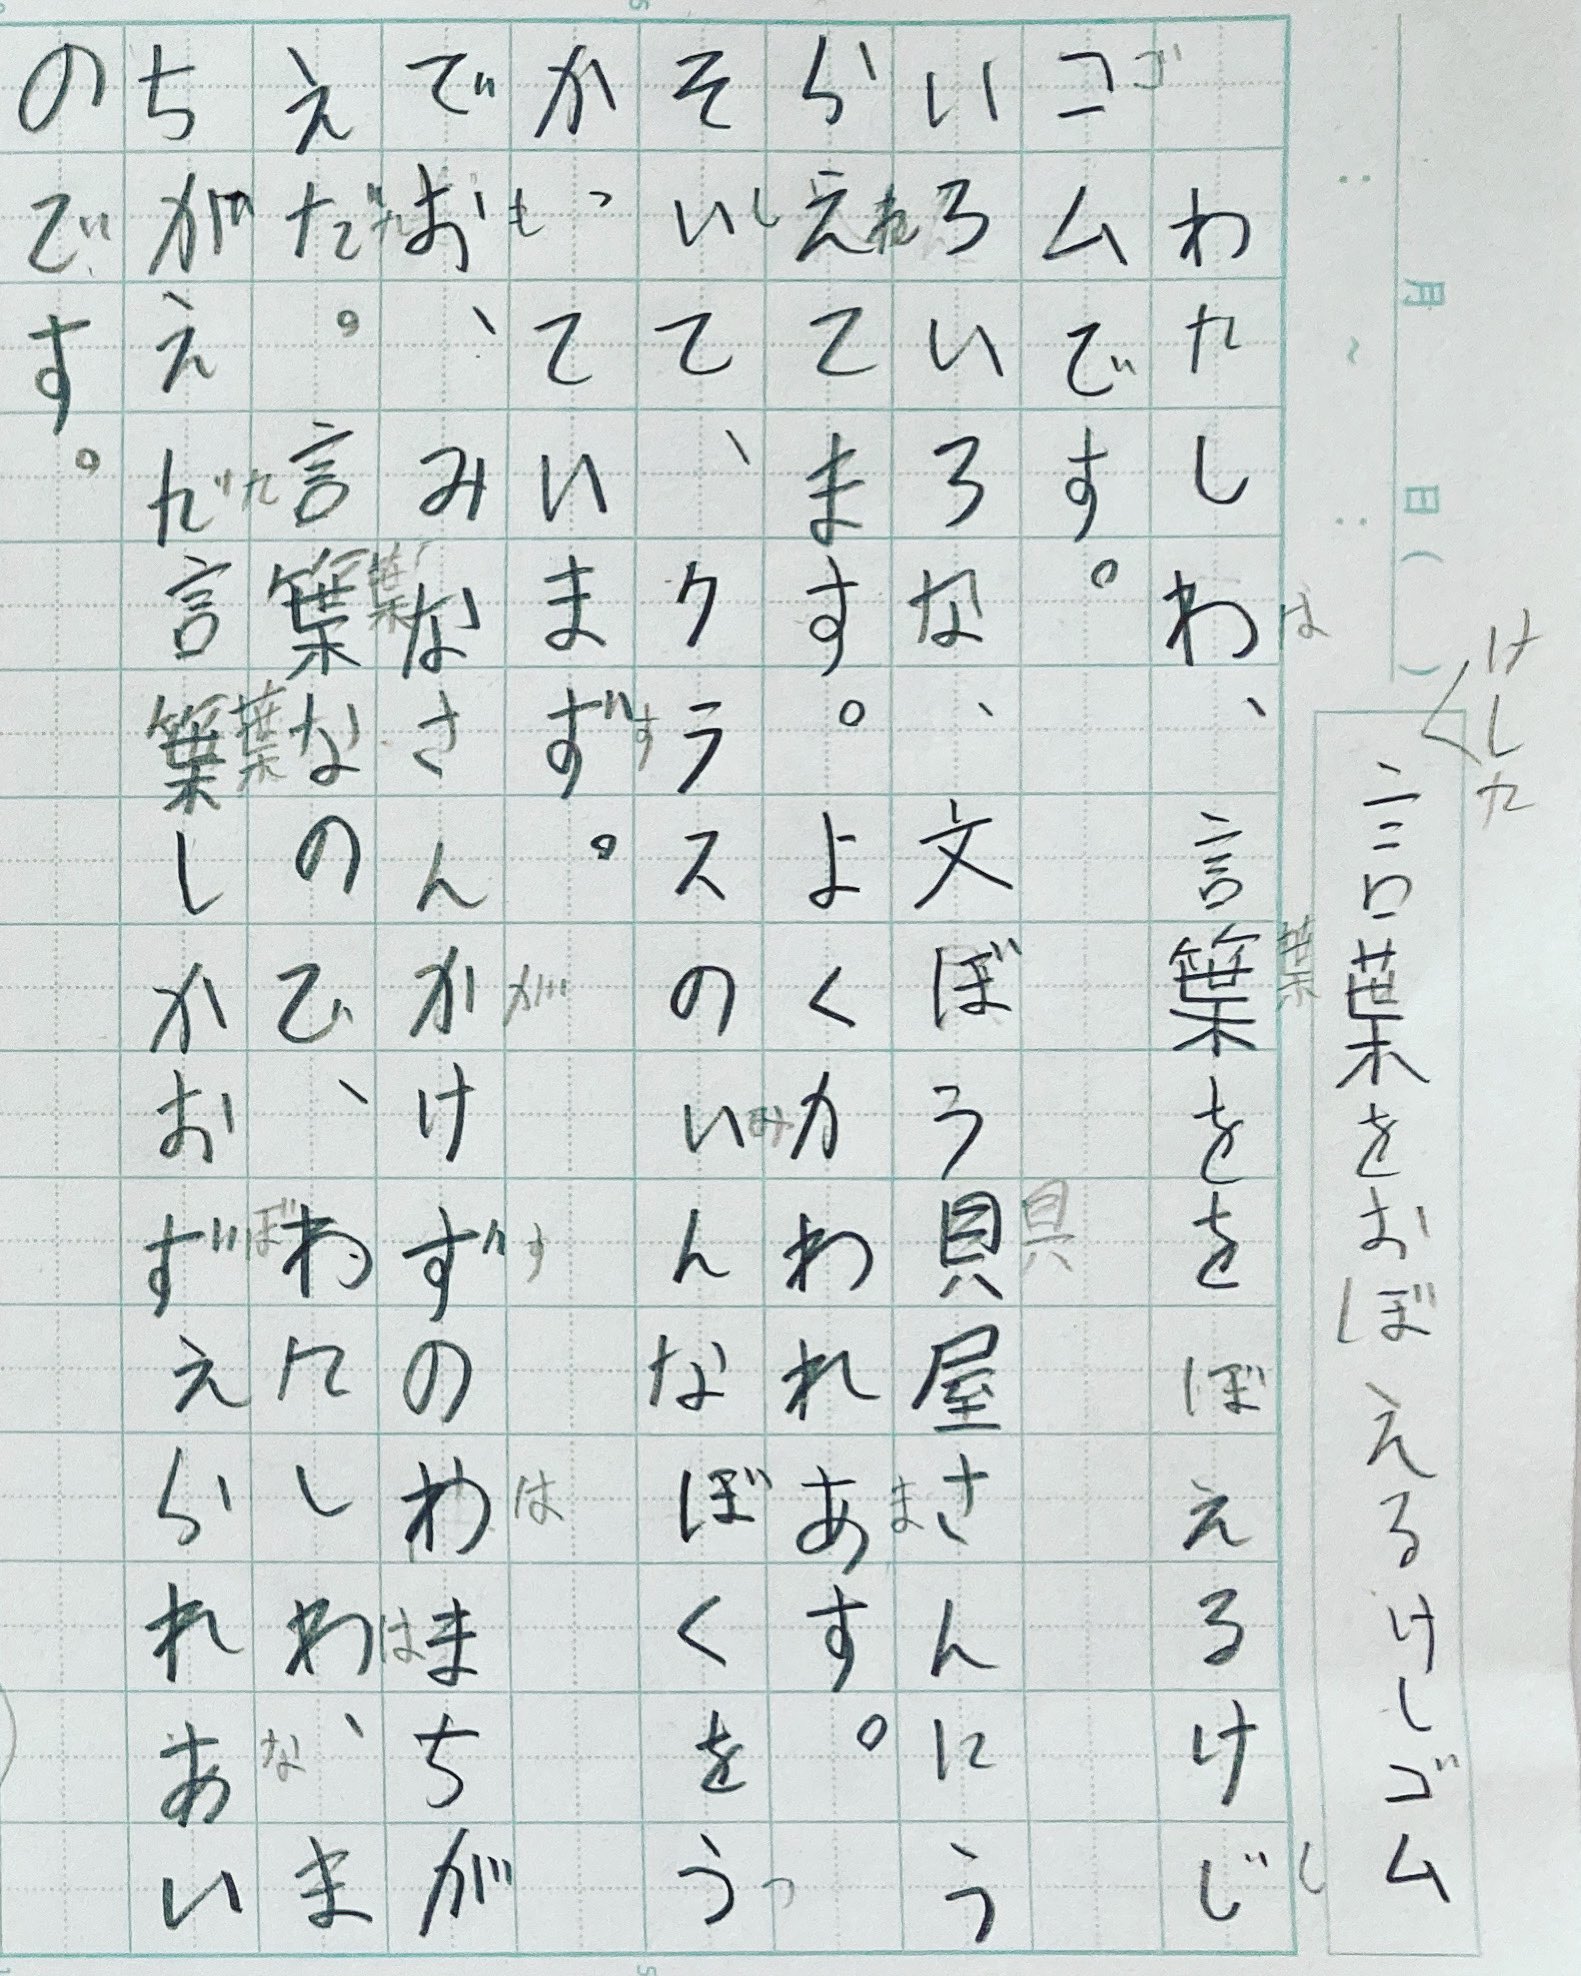 月 日( )
: ~ :
けした
言葉をおぼえるけしゴム
わたしわ、言葉ををぼえるけじ
は 葉 し
コムです。
ゴ
いろいろな、文ぼう貝屋さんにう
具
らえてます。よくかわれあす。
れ ま
そいて、クラスのいんなぼくをう
し み っ
かっていまず。
す
でお、みなさんかけずのわまちが
も が す は
えだ。言葉なので、わたしわ、ま
た 葉 は
ちがえだ言葉しかおずえられあい
た 葉 ぼ な
のです。